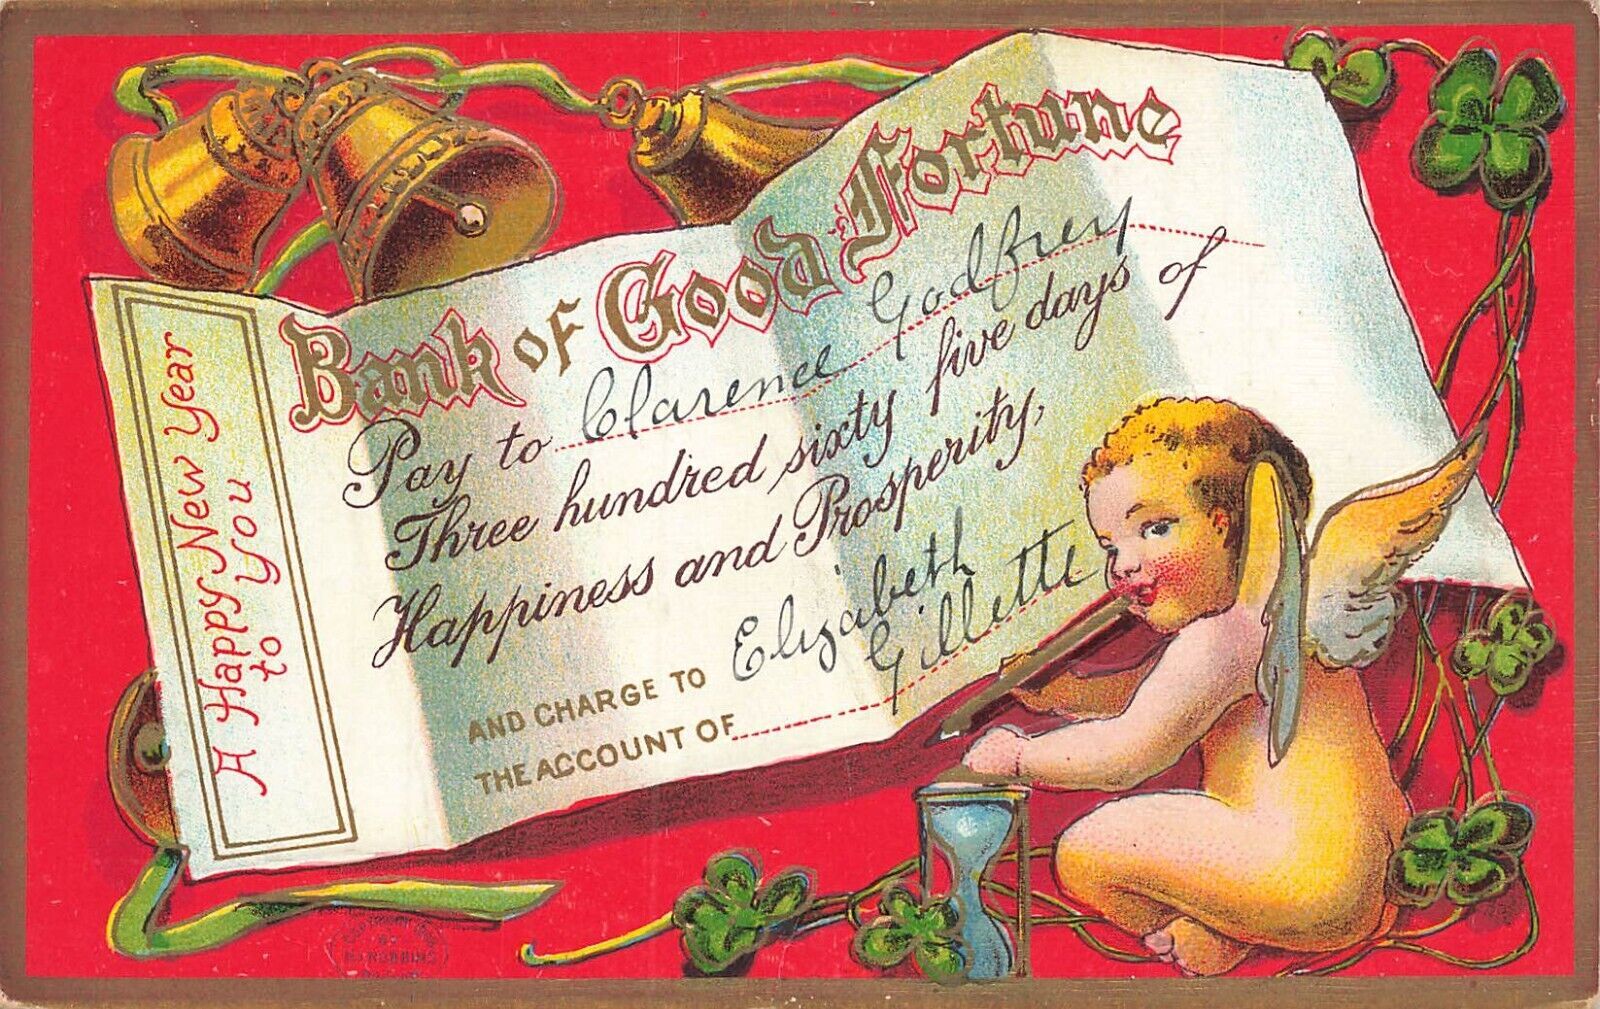 A Happy New Year
to You
Bank of Good Fortune
Pay to Clarence Godfrey
Three hundred sixty five days of
Happiness and Prosperity,
AND CHARGE TO
THE ACCOUNT OF
Elizabeth
Gillette
ROBBINS